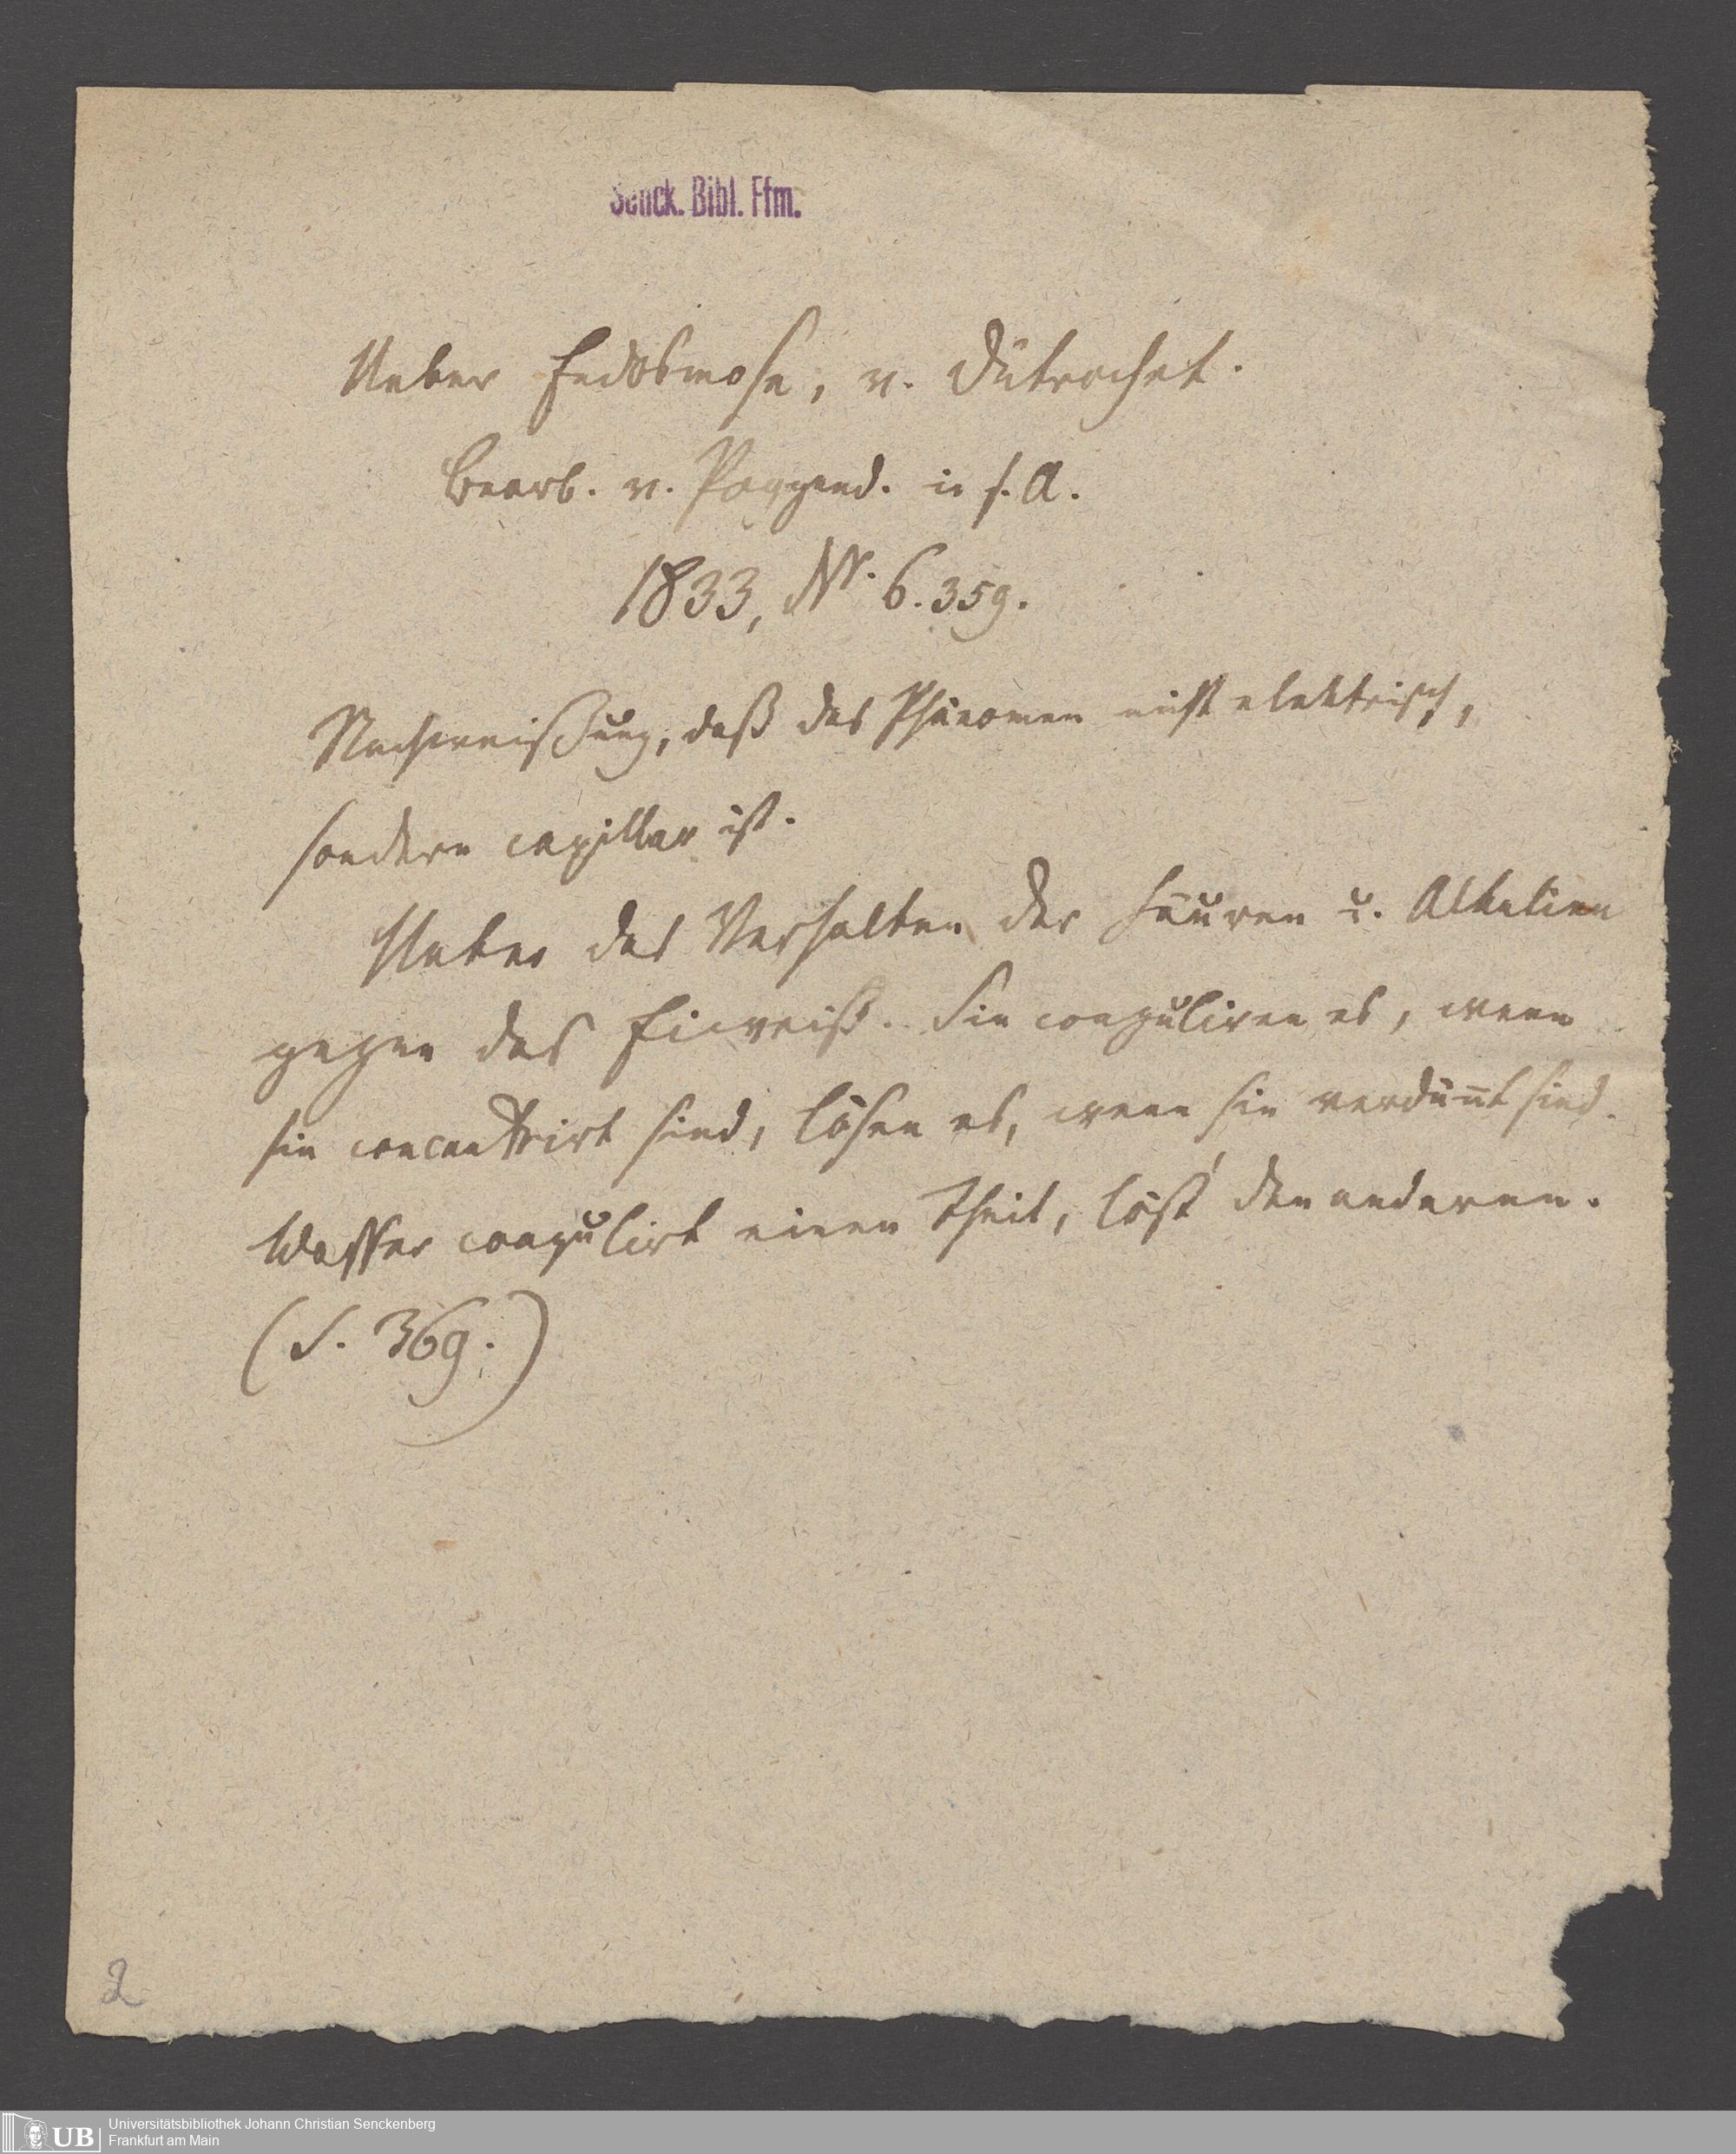 Senck. Bibl. Ffm.
Ueber Endosmose, v. Dütrochet.
Bearb. v. Poggend. in s. A.
1833, Nr. 6. 359.
Nachweißung, daß das Phänomen nicht elektrisch,
sondern capillar ist.
Ueber das Verhalten der Säuren u. Alkalien
gegen das Eiweiß. Sie coaguliren es, wenn
sie concentrirt sind, lösen es, wenn sie verdünnt sind.
Wasser coagulirt einen Theil, löst den anderen.
(S. 369.)
2
UB
Universitätsbibliothek Johann Christian Senckenberg
Frankfurt am Main